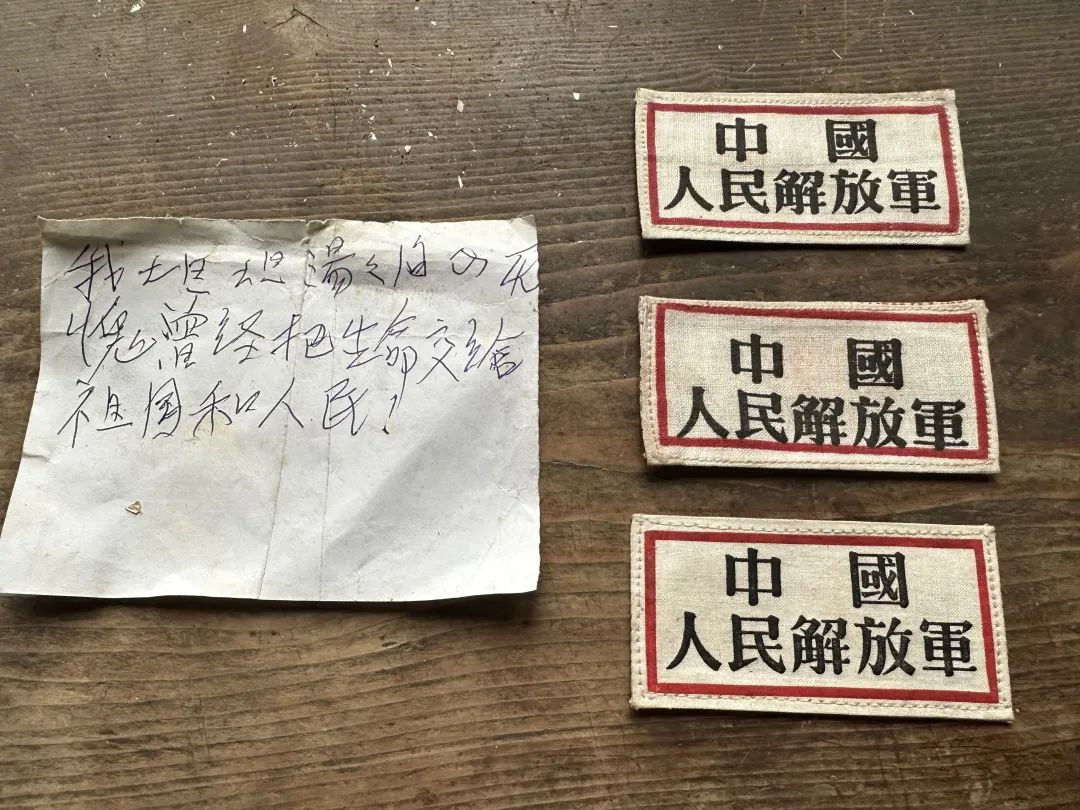 我坦坦湯々的无
愧曾经把生命交给
祖国和人民!
中國
人民解放軍
中國
人民解放軍
中國
人民解放軍